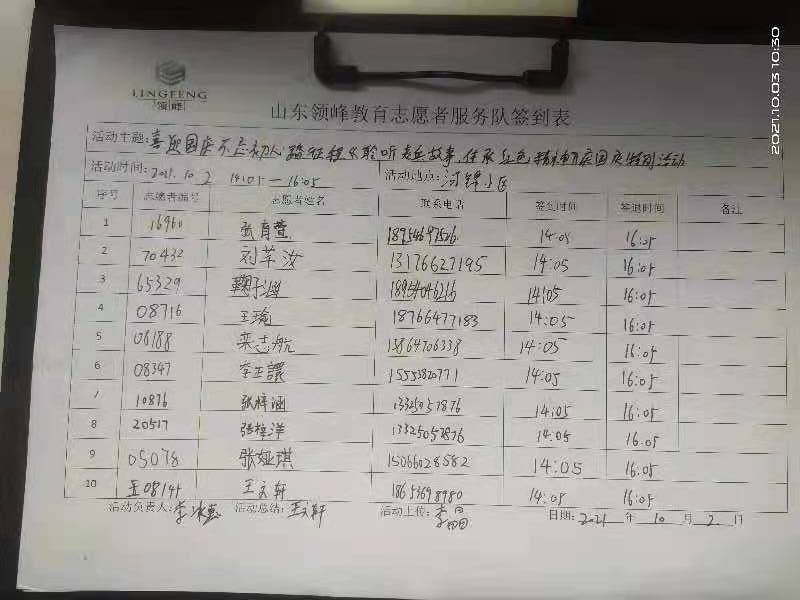 2021.10.03 10:30
LINGFENG
领峰
山东领峰教育志愿者服务队签到表
活动主题:喜迎国庆不忘初心路征程 聆听老兵故事,传承红色精神 国庆特别活动
活动时间:2021.10.2 14:05—16:05 活动地点:河锦小区
序号 志愿者编号 志愿者姓名 联系电话 签到时间 签退时间 备注
1 16960 张育萱 18954697526 14:05 16:05
2 70432 刘芊汝 13176627195 14:05 16:05
3 65329 鞠子涵 14:05 16:05
4 08716 王琬 18766477183 14:05 16:05
5 06188 栾志航 13864706338 14:05 16:05
6 08347 15553820771 14:05 16:05
7 10876 张梓涵 13325057876 14:05 16:05
8 20517 张梓洋 13325057876 14:05 16.05
9 05078 张娅琪 15066028582 14:05 16.05
10 王文轩 18653698980 14:05 16:05
活动负责人:李冰蕊 活动总结:王文轩 活动上传:李 日期:2021 年 10 月 2 日